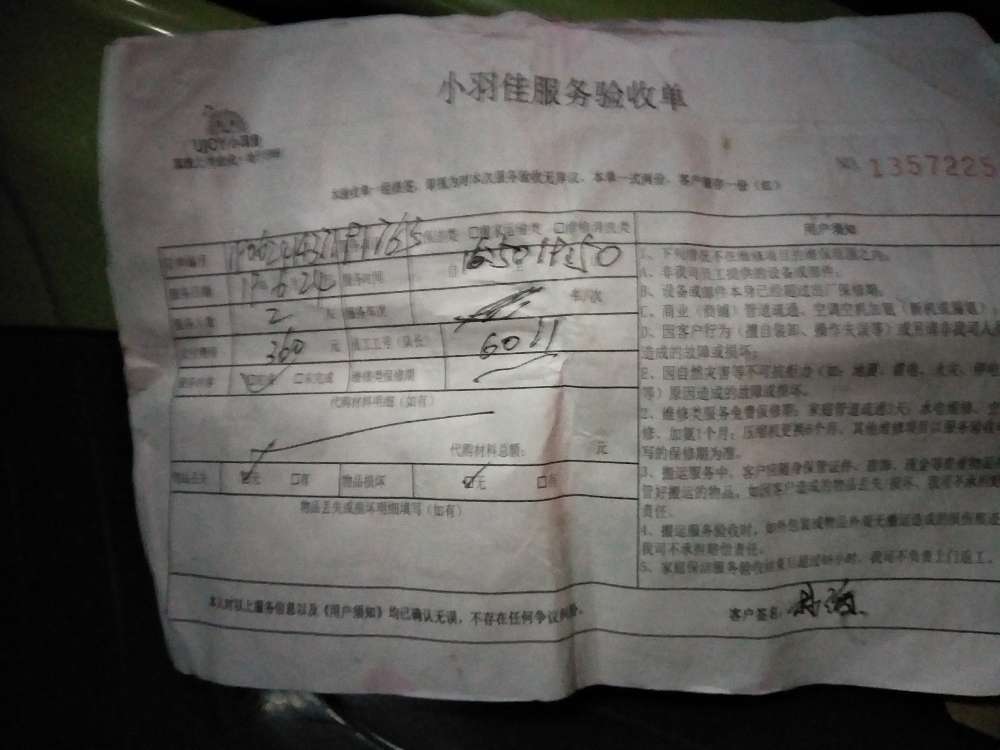 小羽佳服务验收单
UJOY小羽佳
No. 1357225
本验收单一经签署，即视为对本次服务验收无异议。本单一式两份，客户留存一份（红）
保洁类 □搬家运输类 □维修清洗类
服务日期 17.6.24 服务时间 自 15:50
服务人数 2 人 服务年次 年/次
360 元 员工工号（队长） 6011
服务内容 □完成 □未完成 维修类保修期
代购材料明细（如有）
代购材料总额： 元
物品丢失 ☑无 □有 物品损坏 ☑无 □有
物品丢失或损坏明细填写（如有）
本人对以上服务信息以及《用户须知》均已确认无误，不存在任何争议纠纷。
客户签名：
用户须知
1、下列情况不在维修项目的维保范围之内。
A、非我司员工提供的设备或部件。
B、设备或部件本身已经超过出厂保修期。
C、商业（商铺）管道疏通、空调空机加氨（新机或漏氨）
D、因客户行为（擅自装卸、操作失误等）或另请非我司人
造成的故障或损坏；
E、因自然灾害等不可抗拒力（如：地震、雷电、火灾、停电
等）原因造成的故障或损坏。
2、维修类服务免费保修期：家庭管道疏通3天；水电维修、
修、加氨1个月；压缩机更换6个月、其他维修项目以服务验收
写的保修期为准。
3、搬运服务中，客户应随身保管证件、首饰、现金等贵重物品
管好搬运的物品，如因客户造成的物品丢失/损坏，我司不承担
责任。
4、搬运服务验收时，如外包装或物品外观无搬运造成的损伤痕迹
我司不承担赔偿责任。
5、家庭保洁服务验收结束后超过48小时，我司不负责上门返工。